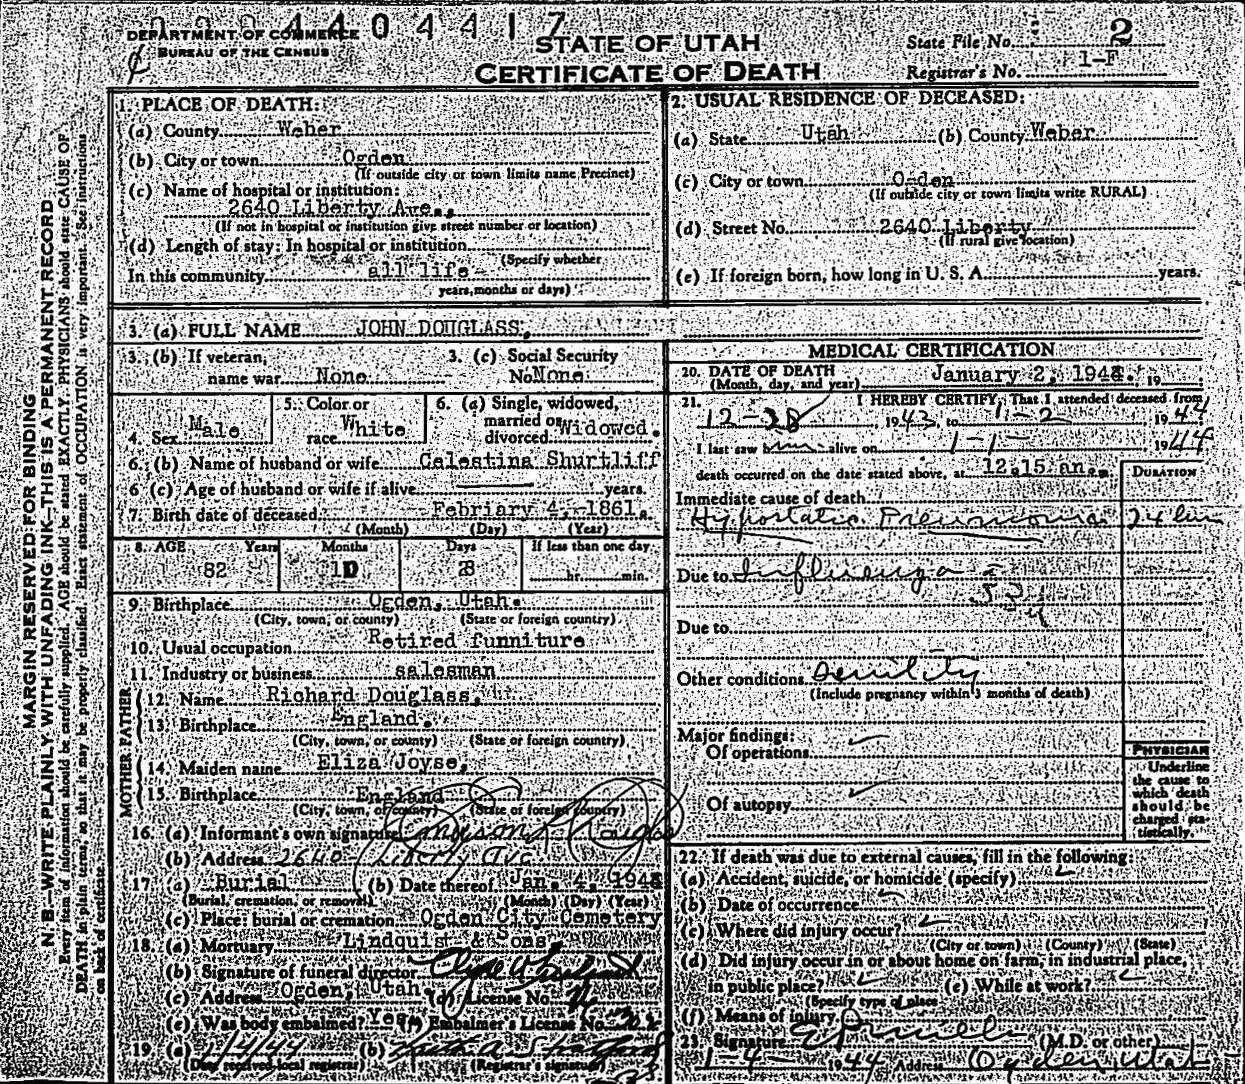 4 4 0 4 4 1 7
DEPARTMENT OF COMMERCE
BUREAU OF THE CENSUS
STATE OF UTAH
CERTIFICATE OF DEATH
State File No. 2
Registrar's No. 1-F
MARGIN RESERVED FOR BINDING
N. B.—WRITE PLAINLY WITH UNFADING INK—THIS IS A PERMANENT RECORD
Every item of information should be carefully supplied. AGE should be stated EXACTLY. PHYSICIANS should state CAUSE OF
DEATH in plain terms, so that it may be properly classified. Exact statement of OCCUPATION is very important. See instructions
on back of certificate.
1. PLACE OF DEATH:
(a) County Weber
(b) City or town Ogden
(If outside city or town limits name Precinct)
(c) Name of hospital or institution:
2640 Liberty Ave.,
(If not in hospital or institution give street number or location)
(d) Length of stay: In hospital or institution
(Specify whether
In this community all life
years, months or days)
2. USUAL RESIDENCE OF DECEASED:
(a) State Utah (b) County Weber
(c) City or town Ogden
(If outside city or town limits write RURAL)
(d) Street No. 2640 Liberty
(If rural give location)
(e) If foreign born, how long in U. S. A. years.
3. (a) FULL NAME JOHN DOUGLASS,
3. (b) If veteran, 3. (c) Social Security
name war None No None
4. Sex Male 5. Color or race White 6. (a) Single, widowed, married or divorced Widowed.
6. (b) Name of husband or wife Celestina Shurtliff
6 (c) Age of husband or wife if alive years.
7. Birth date of deceased Febriary 4, 1861.
(Month) (Day) (Year)
8. AGE Years Months Days If less than one day
82 10 28 hr. min.
9. Birthplace Ogden, Utah.
(City, town, or county) (State or foreign country)
10. Usual occupation Retired funniture
11. Industry or business salesman
FATHER
12. Name Richard Douglass,
13. Birthplace England.
(City, town, or county) (State or foreign country)
MOTHER
14. Maiden name Eliza Joyse,
15. Birthplace England
(City, town, or county) (State or foreign country)
16. (a) Informant's own signature
(b) Address 2640 Liberty Ave
17 (a) Burial (b) Date thereof Jan. 4, 1944
(Burial, cremation, or removal) (Month) (Day) (Year)
(c) Place: burial or cremation Ogden City Cemetery
18. (a) Mortuary Lindquist & Sons,
(b) Signature of funeral director
(c) Address Ogden, Utah. (d) License No.
(e) Was body embalmed? Yes (f) Embalmer's License No.
19. (a) 1/4/44 (b)
(Date received local registrar) (Registrar's signature)
MEDICAL CERTIFICATION
20. DATE OF DEATH January 2, 1944. 19
(Month, day, and year)
21. I HEREBY CERTIFY, That I attended deceased from
12-28, 1943, to 1-2, 1944
I last saw him alive on 1-1-, 1944
death occurred on the date stated above, at 12.15 am.
DURATION
Immediate cause of death
Hypostatic Pneumonia 24 hrs
Due to Influenza
Due to
Other conditions Senility
(Include pregnancy within 3 months of death)
Major findings:
Of operations
Of autopsy
PHYSICIAN
Underline
the cause to
which death
should be
charged sta-
tistically.
22. If death was due to external causes, fill in the following:
(a) Accident, suicide, or homicide (specify)
(b) Date of occurrence
(c) Where did injury occur?
(City or town) (County) (State)
(d) Did injury occur in or about home on farm, in industrial place,
in public place? (e) While at work?
(Specify type of place
(f) Means of injury
23. Signature (M.D. or other)
1-4-1944 Address Ogden Utah